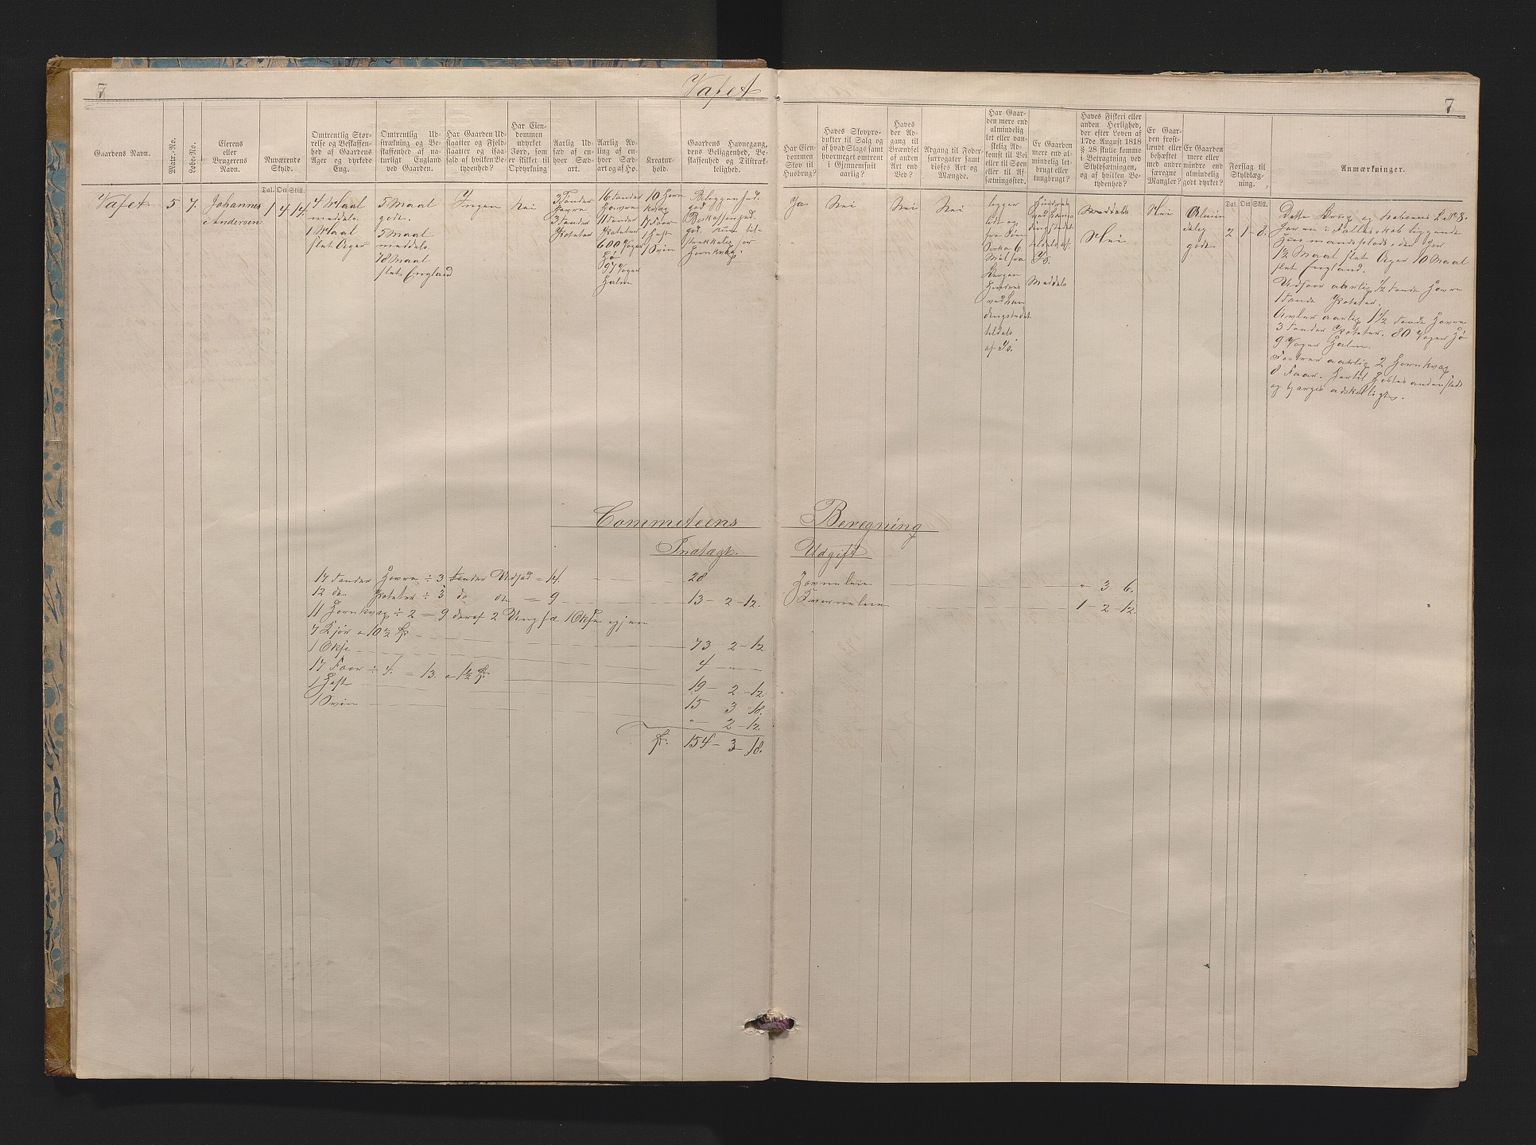 7
Vafet
7
Gaardens Navn.
Matr.-No.
Løbe-No.
Eierens
eller
Brugerens
Navn.
Nuværende
Skyld.
Dal. Ort Skill.
Omtrentlig Stør-
relse og Beskaffen-
hed af Gaardens
Ager og dyrkede
Eng.
Omtrentlig Ud-
strækning og Be-
skaffenhed af na-
turligt England
ved Gaarden.
Har Gaarden Ud-
slaatter og Fjeld-
slaatter og i saa-
fald af hvilken Be-
tydenhed?
Har Eien-
dommen
udyrket
Jord, som
er skikket til
Opdyrkning
Aarlig Ud-
sæd af en-
hver Sæd-
art.
Aarlig Av-
ling af en-
hver Sæd-
art og af Hø.
Kreatur-
hold.
Gaardens Havnegang,
dens Beliggenhed, Be-
skaffenhed og Tilstræk-
kelighed.
Har Eien-
dommen
Skov til
Husbrug?
Haves Skovpro-
dukter til Salg og
af hvad Slags samt
hvormeget omtrent
i Gjennemsnit
aarlig?
Haves
der Ad-
gang til
Brændsel
af anden
Art end
Ved?
Adgang til Foder-
surrogater samt
disses Art og
Mængde.
Har Gaar-
den mere end
almindelig
let eller van-
skelig Ad-
komst til Vei
eller til Søen
eller til Af-
sætningssted.
Er Gaarden
mere end al-
mindelig let-
brugt eller
tungbrugt?
Haves Fiskeri eller
anden Herlighed,
der efter Loven af
17de August 1818
§ 28 skulle komme
i Betragtning ved
Skyldsætningen,
og af hvilken Be-
tydenhed?
Er Gaar-
den frost-
lændt eller
behæftet
med andre
særegne
Mangler?
Er Gaarden
mere eller
mindre end
almindelig
godt dyrket?
Forslag til
Skyldlæg-
ning.
Dal. Ort Skill.
Anmærkninger.
Vafet
5
7
Johannes
Andersen
1 4 14
7 Maal
meddels
1 Maal
slet Ager
5 Maal
gode.
5 Maal
meddels
78 Maal
slet England
Ingen
Nei
3 Tønder
Havre
3 Tønder
Poteter
16 Tønder
Havre
11 Tønder
Poteter
600 Voger
Hø
97 Voger
Halm
10 Horn
kvæg
1 Hest
1 Sviin
Beliggenhed.
god
Beskaffenhed.
god.
Hornkvæg.
Ja
Nei
Nei
Nei
Meddels
meddels
Nei
Nei
Almin
delig
gode.
2 1 8.
Dette Brug og naboens L. No 8.
haver i Fællesskab liggende
Huusmandsplads, der har
1½ Maal slet Ager 10 Maal
slet England.
Udsaar aarlig ½ Tønde Havre
1 Tønde Poteter.
Avler aarlig 1½ Tønde Havre
3 Tønder Poteter. 80 Voger Hø
9 Voger Halm.
Fostrer aarlig 2 Hornkvæg
8 Faar.
Commiteens Beregning
Indtægt. Udgift
17 Tønder Havre ÷ 3 Tønder Udsæd = 14 20
12 do Poteter ÷ 3 do do = 9 13 – 2 – 12.
11 Hornkvæg ÷ 2 = 9 deraf 2 Ungfæ 1 Okse igjen
7 Kjør a 10½ Sp 73 2 – 12
1 Okse 4 – –
17 Faar ÷ 4 = 13. a 1½ Sp. 19 – 2 – 12
1 Hest 15 3 18.
1 Sviin " – 2 – 12.
Sp. 154 – 3 – 18.
" 3 6.
1 2 12.